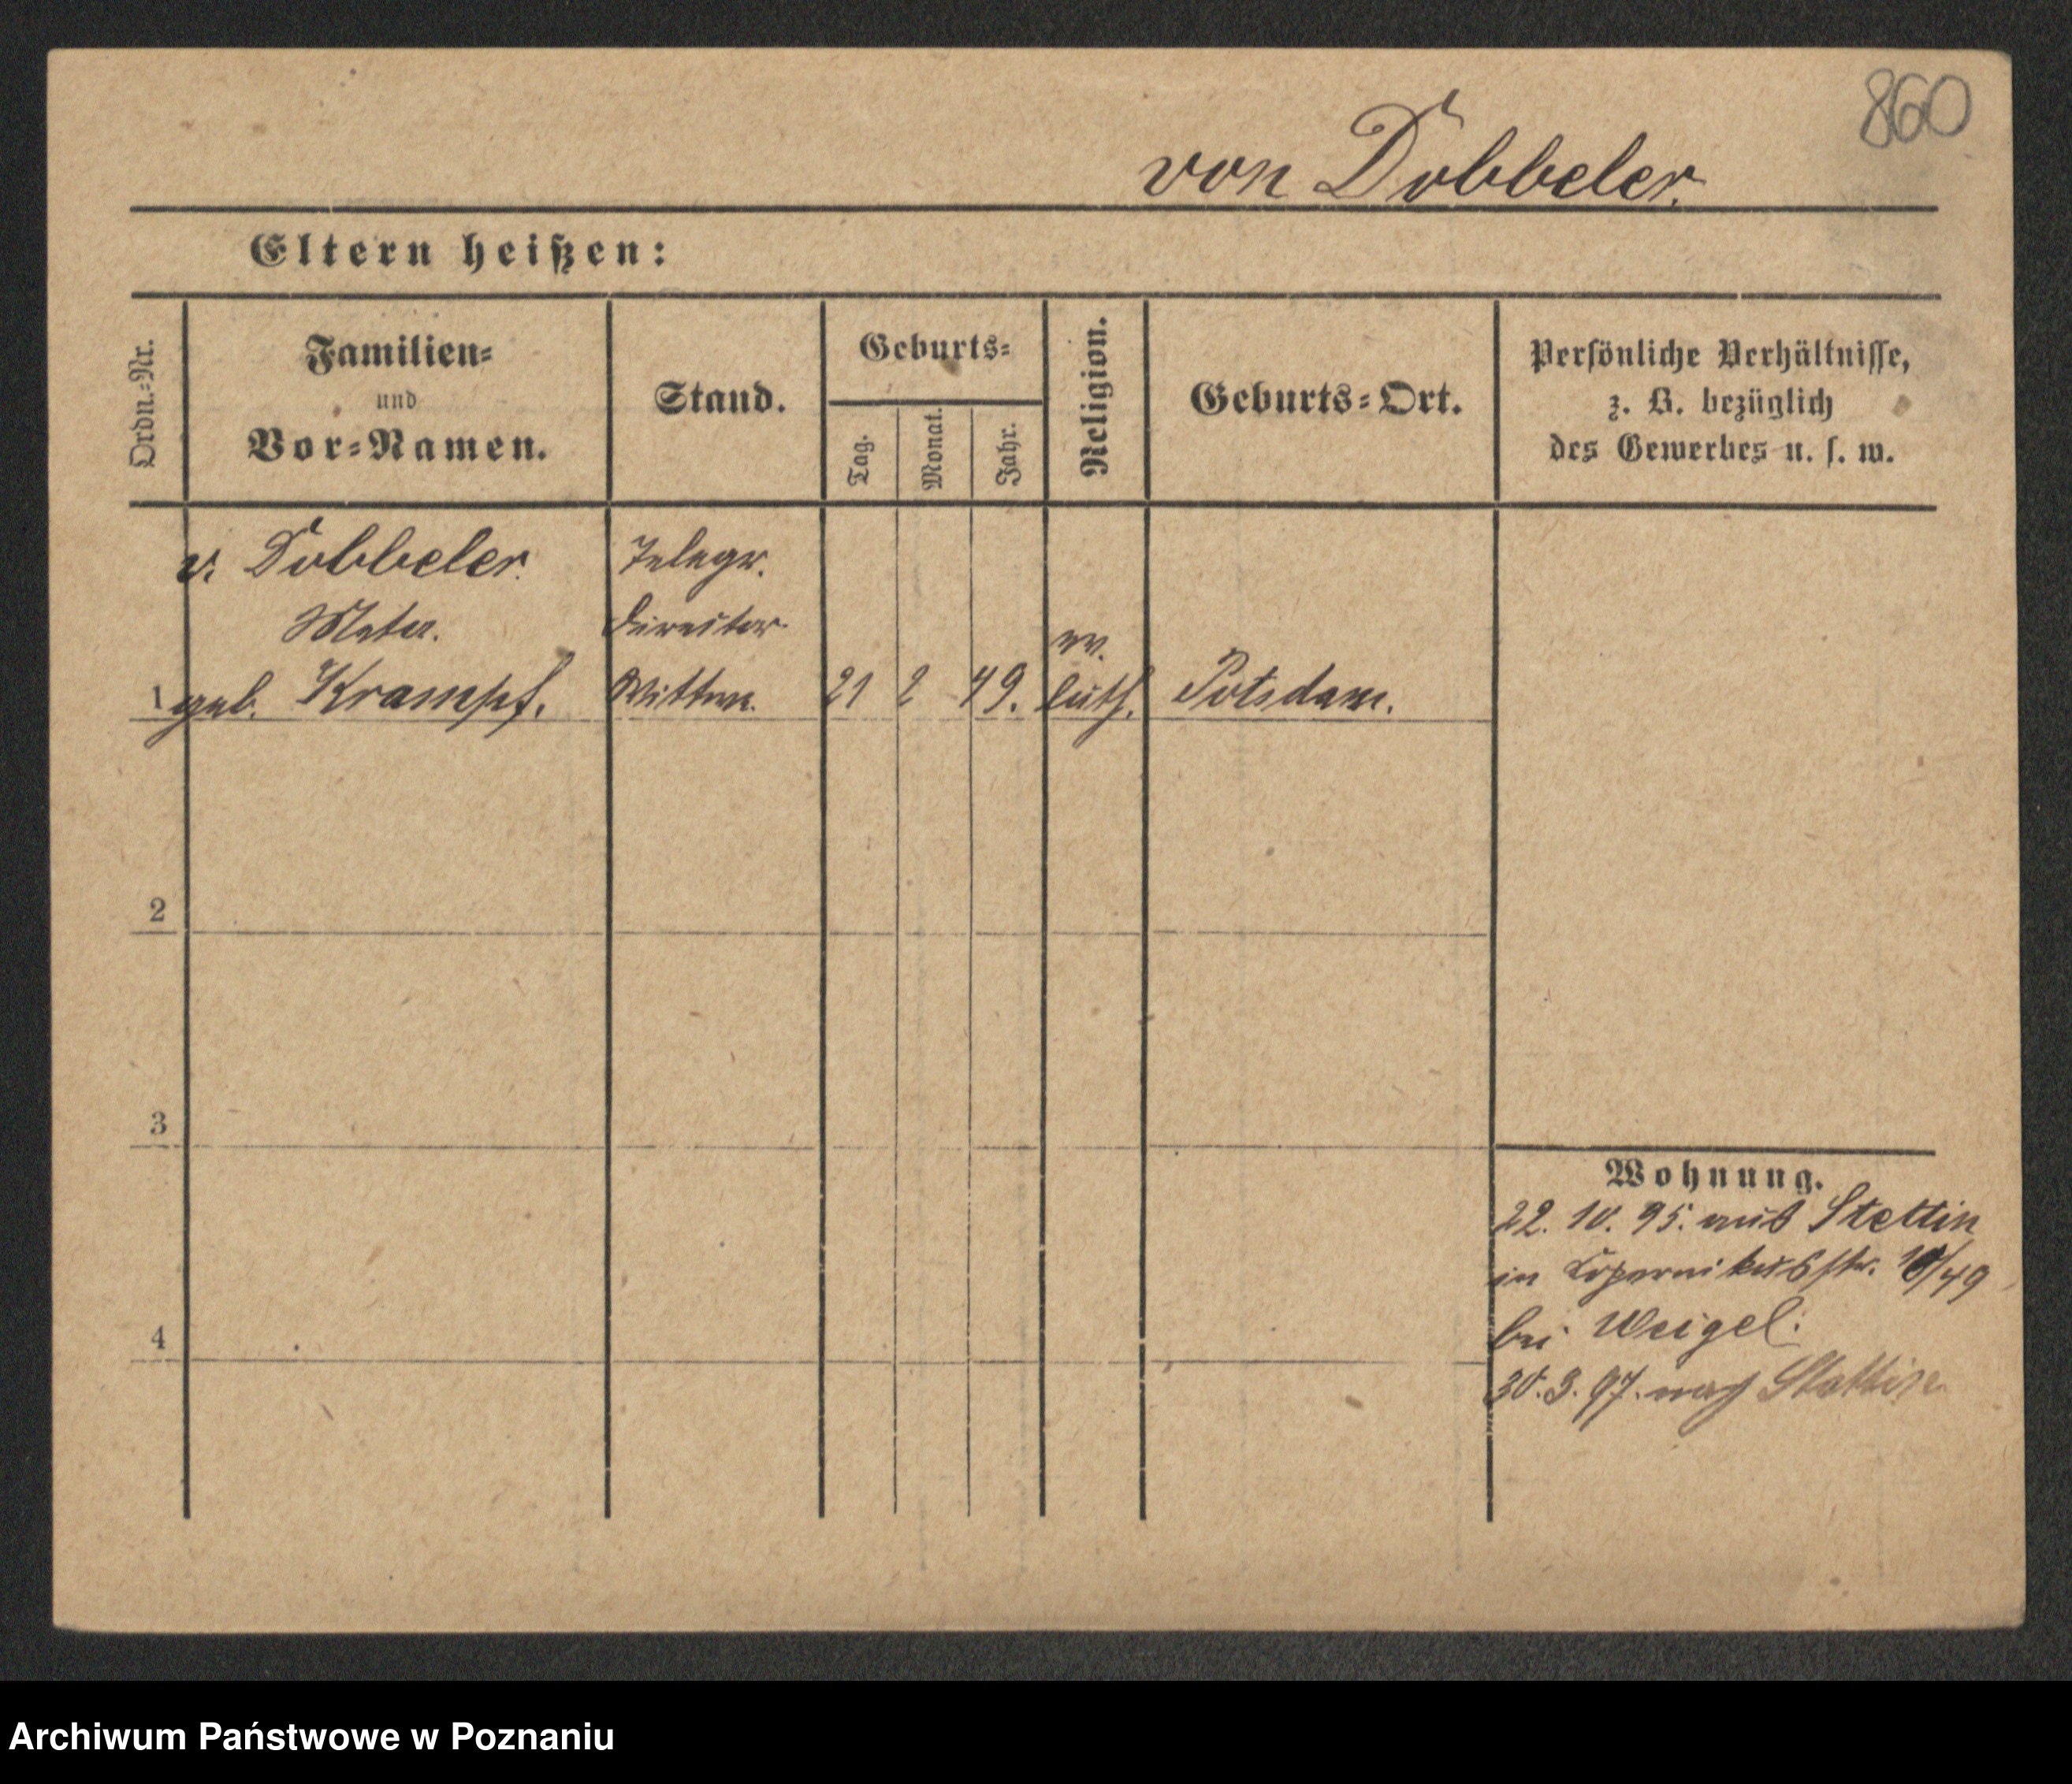 860
von Döbbeler.
Eltern heißen:
Ordn.=Nr.
Familien=
und
Vor=Namen.
Stand.
Geburts=
Tag.
Monat.
Jahr.
Religion.
Geburts=Ort.
Persönliche Verhältnisse,
z. B. bezüglich
des Gewerbes u. s. w.
v. Döbbeler. Telegr.
Meta. Director
ev.
1 geb. Krampf. Wittwe. 21 2 49. luth. Potsdam.
2
3
4
Wohnung.
22. 10. 95. aus Stettin
in Kopernikusstr. /49
bei Weigel.
30. 3. 97. nach Stettin